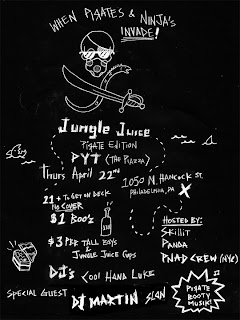 WHEN PIRATES & NINJA'S
INVADE!
Jungle Juice
PIRATE EDITION
PYT (THE PIAZZA)
Thurs April 22nd
1050 N. HANCOCK ST.
PHILADELPHIA, PA
X
21+ TO GET ON DECK
NO COVER
$1 BOO'Z
$3 PBR TALL BOYS &
JUNGLE JUICE CUPS
HOSTED BY:
SKILLIT
PANDA
PNAP CREW (NYC)
DJ'S COOL HAND LUKE
SPECIAL GUEST
& DJ MARTIN
PIRATE
BOOTY
MUSIK!